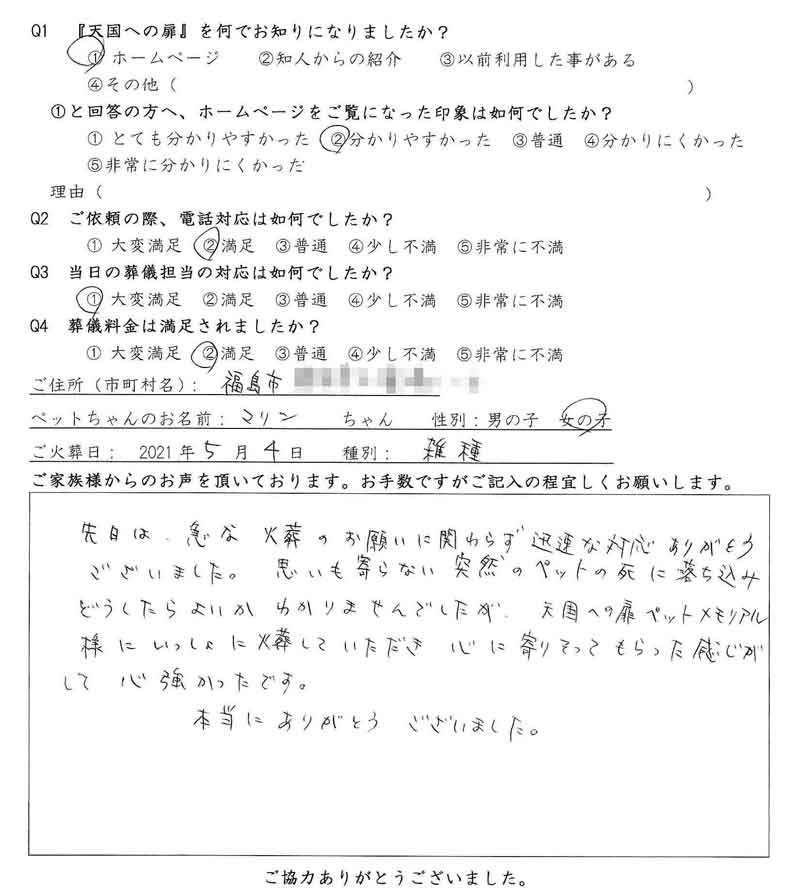 Q1 『天国への扉』を何でお知りになりましたか？
① ホームページ ②知人からの紹介 ③以前利用した事がある
④その他（ ）
①と回答の方へ、ホームページをご覧になった印象は如何でしたか？
① とても分かりやすかった ②分かりやすかった ③普通 ④分かりにくかった
⑤非常に分かりにくかった
理由（ ）
Q2 ご依頼の際、電話対応は如何でしたか？
① 大変満足 ②満足 ③普通 ④少し不満 ⑤非常に不満
Q3 当日の葬儀担当の対応は如何でしたか？
① 大変満足 ②満足 ③普通 ④少し不満 ⑤非常に不満
Q4 葬儀料金は満足されましたか？
① 大変満足 ②満足 ③普通 ④少し不満 ⑤非常に不満
ご住所（市町村名）： 福島市
ペットちゃんのお名前：マリン ちゃん 性別：男の子 女の子
ご火葬日： 2021年5月4日 種別： 雑種
ご家族様からのお声を頂いております。お手数ですがご記入の程宜しくお願いします。
先日は、急な火葬のお願いに関わらず迅速な対応ありがとう
ございました。 思いも寄らない突然のペットの死に落ち込み
どうしたらよいかわかりませんでしたが、天国への扉ペットメモリアル
様にいっしょに火葬していただき 心に寄りそってもらった感じが
して心強かったです。
本当にありがとうございました。
ご協力ありがとうございました。